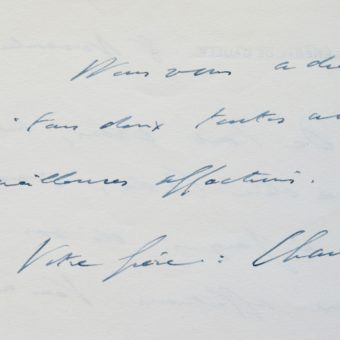 Nous vous adr
tous deux toutes no
meilleures affections.
Votre frère : Char